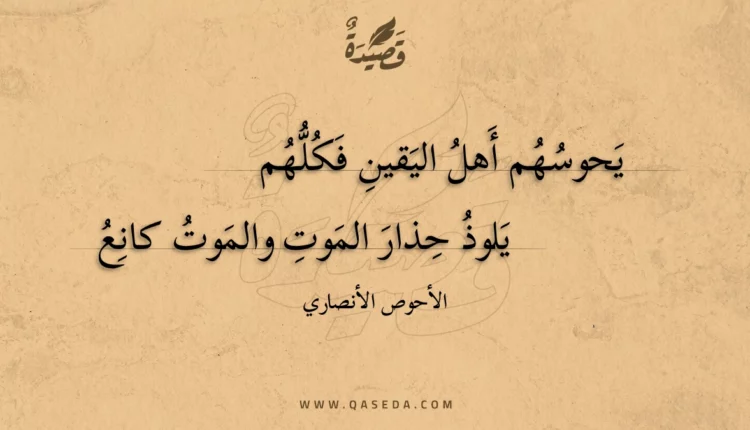 قَصِيْدَةٌ
يَحوسُهُم أَهلُ اليَقينِ فَكُلُّهُم
يَلوذُ حِذارَ المَوتِ والمَوتُ كانِعُ
الأحوص الأنصاري
WWW.QASEDA.COM